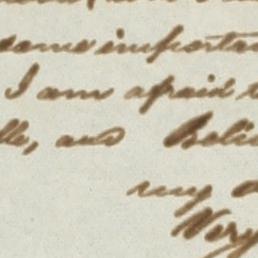 some importan
I am afraid t
lle, and Belie
my d
Very